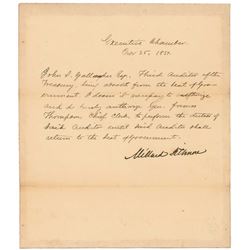 Executive Chamber
Nov 25, 1851.
John S. Gallaher Esq. Third Auditor of the
Treasury, being absent from the seat of Gov-
ernment, I deem it necessary to authorize
and do hereby authorize Geo. James
Thompson Chief Clerk to perform the duties of
said Auditor until said Auditor shall
return to the seat of Government.
Millard Fillmore